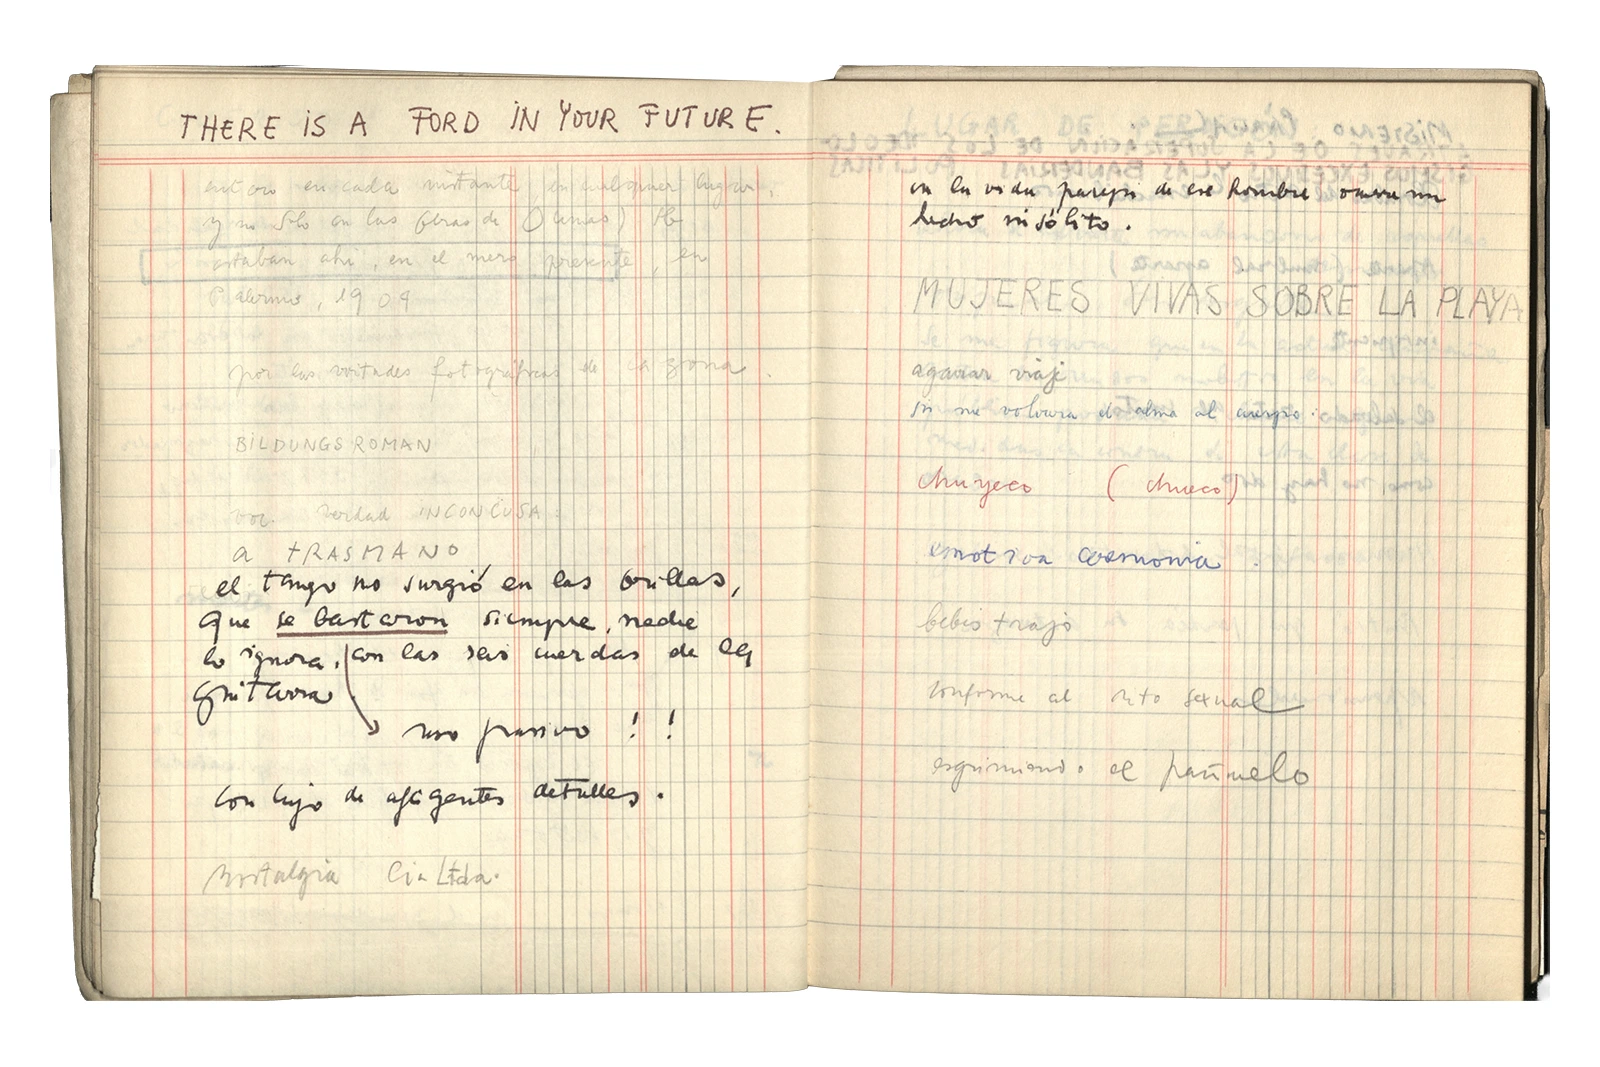 THERE IS A FORD IN YOUR FUTURE.
en cada instante, en cualquier lugar,
y no solo en las obras de
estaban ahi, en el mero presente, en
Palermo, 1909
por las fotográficas de la zona.
BILDUNGSROMAN
voz. verdad INCONCUSA:
a TRASMANO
el tango no surgió en las orillas,
que se bastaron siempre, nadie
lo ignora, con las seis cuerdas de la
guitarra
uso pasivo !!
con lujo de detalles.
nostalgia Cia Ltda.
en la vida pareja de ese hombre ocurre un
hecho insólito.
MUJERES VIVAS SOBRE LA PLAYA
viaje
me el alma al cuerpo.
chuyeco (chueco)
emotiva ceremonia.
bebis trajo
conforme al rito sexual
esgrimiendo el pañuelo